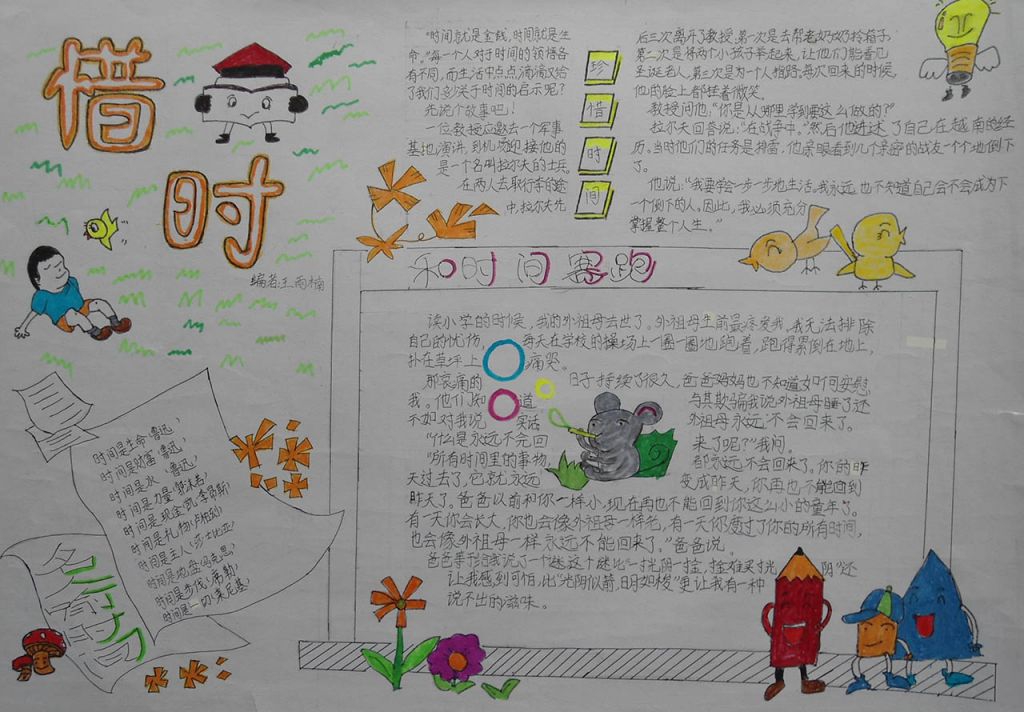 惜
时
编者:王雨楠
"时间就是金钱,时间就是生
命。"每一个人对于时间的领悟各
有不同,而生活中点点滴滴又给
了我们多少关于时间的启示呢?
先说个故事吧!
一位教授应邀去一个军事
基地演讲,到机场迎接他的
是一个名叫拉尔夫的士兵。
在两人去取行李的途
中,拉尔夫先
珍
惜
时
间
后三次离开了教授,第一次是去帮老奶奶拎箱子;
第二次是将两个小孩子举起来,让他们能看见
圣诞老人,第三次是为一个人指路。每次回来的时候,
他的脸上都挂着微笑。
教授问他:"你是从哪里学到要这么做的?"
拉尔夫回答说:"在战争中。"然后他讲述了自己在越南的经
历。当时他们的任务是排雷,他亲眼看到几个亲密的战友一个个地倒下
了。
他说:"我要学会一步一步地生活。我永远也不知道自己会不会成为下
一个倒下的人。因此,我必须充分
掌握整个人生。"
和时间赛跑
读小学的时候,我的外祖母去世了。外祖母生前最疼爱我。我无法排除
自己的忧伤,每天在学校的操场上一圈一圈地跑着,跑得累倒在地上,
扑在草坪上痛哭。
那哀痛的日子持续了很久,爸爸妈妈也不知道如何安慰
我。他们知道与其欺骗我说外祖母睡了还
不如对我说实话:外祖母永远不会回来了。
"什么是永远不会回来了呢?"我问。
"所有时间里的事物,都永远不会回来了。你的昨
天过去了,它就永远变成昨天,你再也不能回到
昨天了。爸爸以前和你一样小,现在再也不能回到你这么小的童年了。
有一天你会长大,你也会像外祖母一样老,有一天你度过了你的所有时间,
也会像外祖母一样永远不能回来了。"爸爸说。
爸爸等于给我说了一个谜,这个谜比"一寸光阴一寸金,寸金难买寸光阴"还
让我感到可怕,比"光阴似箭,日月如梭"更让我有一种
说不出的滋味。
时间是生命(鲁迅)
时间是财富(鲁迅)
时间是水(鲁迅)
时间是力量
时间是现金
时间是礼物
时间是主人(莎士比亚)
时间是地盘(马克思)
时间是步伐(席勒)
时间是一切
名言
时间